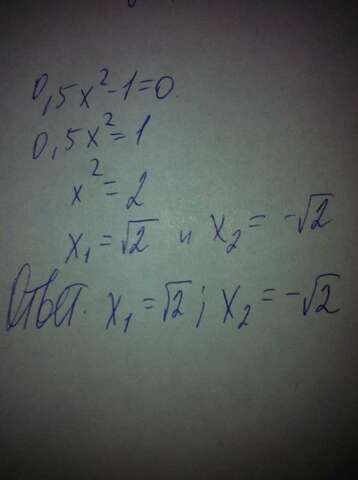 0,5x²-1=0
0,5x²=1
x²=2
x₁=√2 и x₂=-√2
Ответ. x₁=√2; x₂=-√2